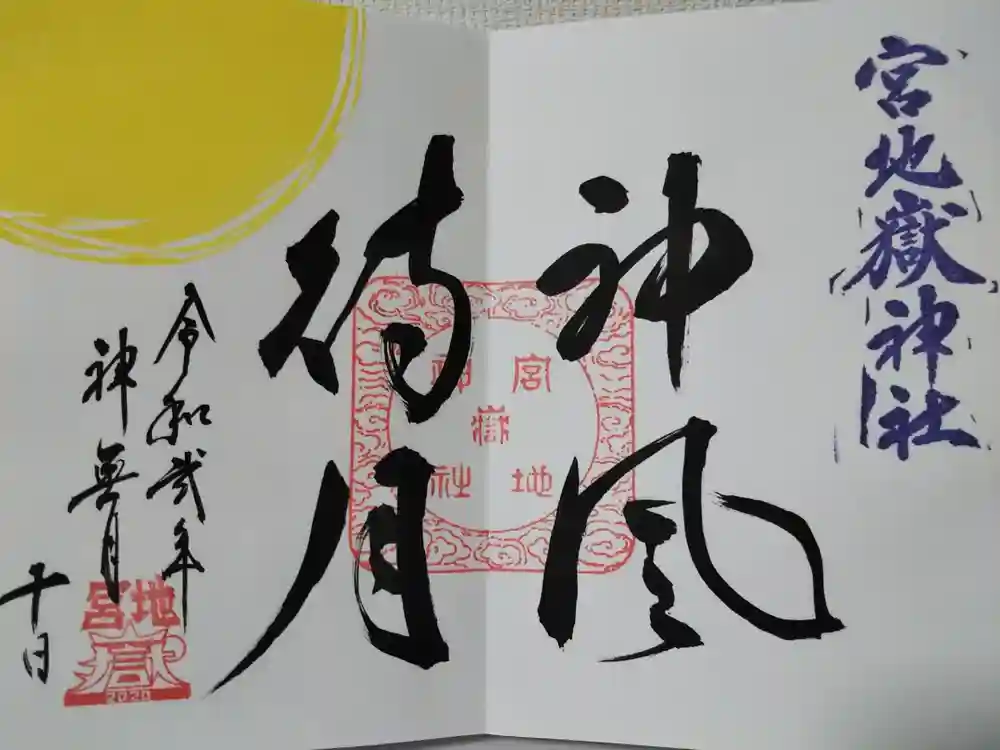 宮地嶽神社
神風
待月
令和弐年
神無月
十日
宮地嶽神社
宮地
嶽
2020